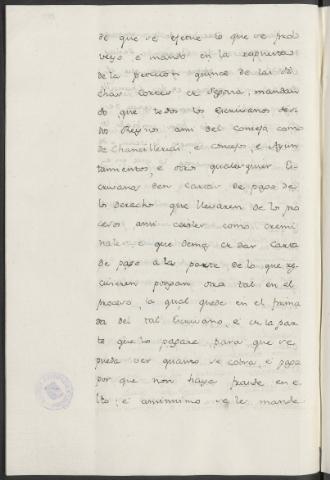 de que se ejecute lo que se pro
veyo e mando en la respuesta
de la peticion quince de las di
chas Cortes de Segovia, mandan
do que todos los Escrivanos des
tos Reynos ansi del consejo, como
de Chancillerias, e concejo, e Ayun
tamientos, e otros qualesquier Es
crivanos den cartas de pago de
los derechos que llevaren de los pro
cesos ansi civiles como crimi
nales, e que demas de dar carta
de pago a la parte de lo que re
civieren pongan otra tal en el
proceso, la qual quede en el firma
da del tal Escrivano, e de la par
te que lo pagare, para que se
pueda ver quanto se cobra, e paga
por que non haya fraude en e
llo; e ansimismo se le mande